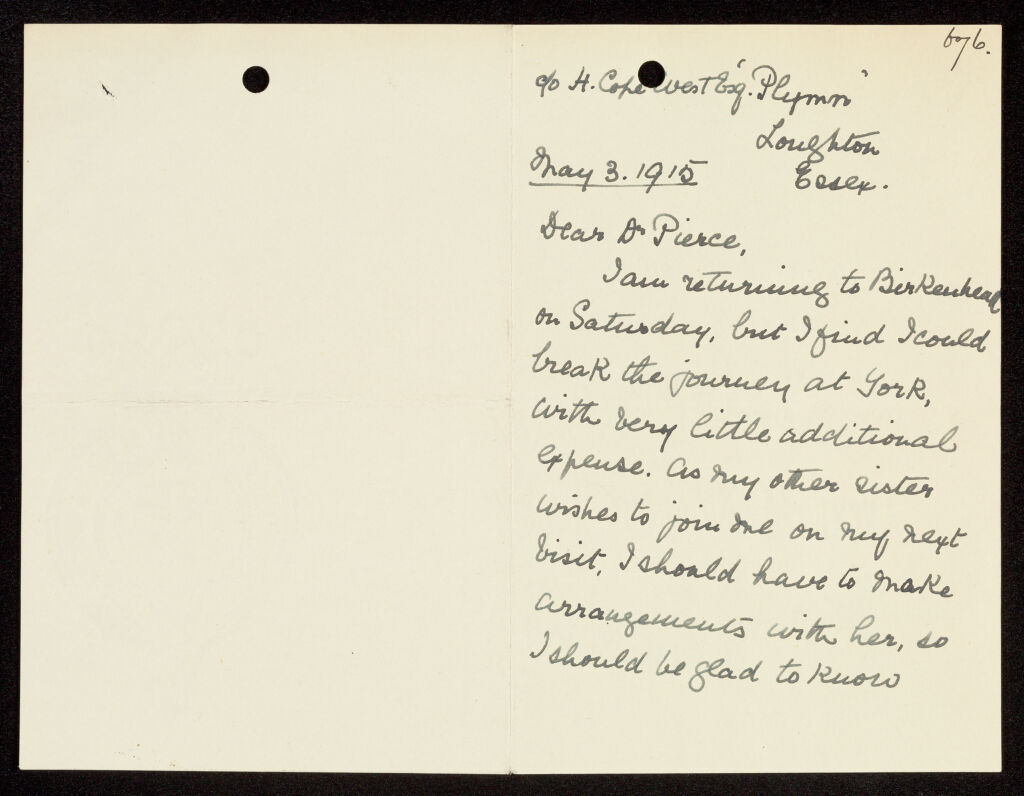 6076.
c/o H. Cope West Esq. "Plymm"
Loughton
May 3. 1915 Essex.
Dear Dr Pierce,
I am returning to Birkenhead
on Saturday, but I find I could
break the journey at York,
with very little additional
expense. As my other sister
wishes to join me on my next
visit, I should have to make
arrangements with her, so
I should be glad to know